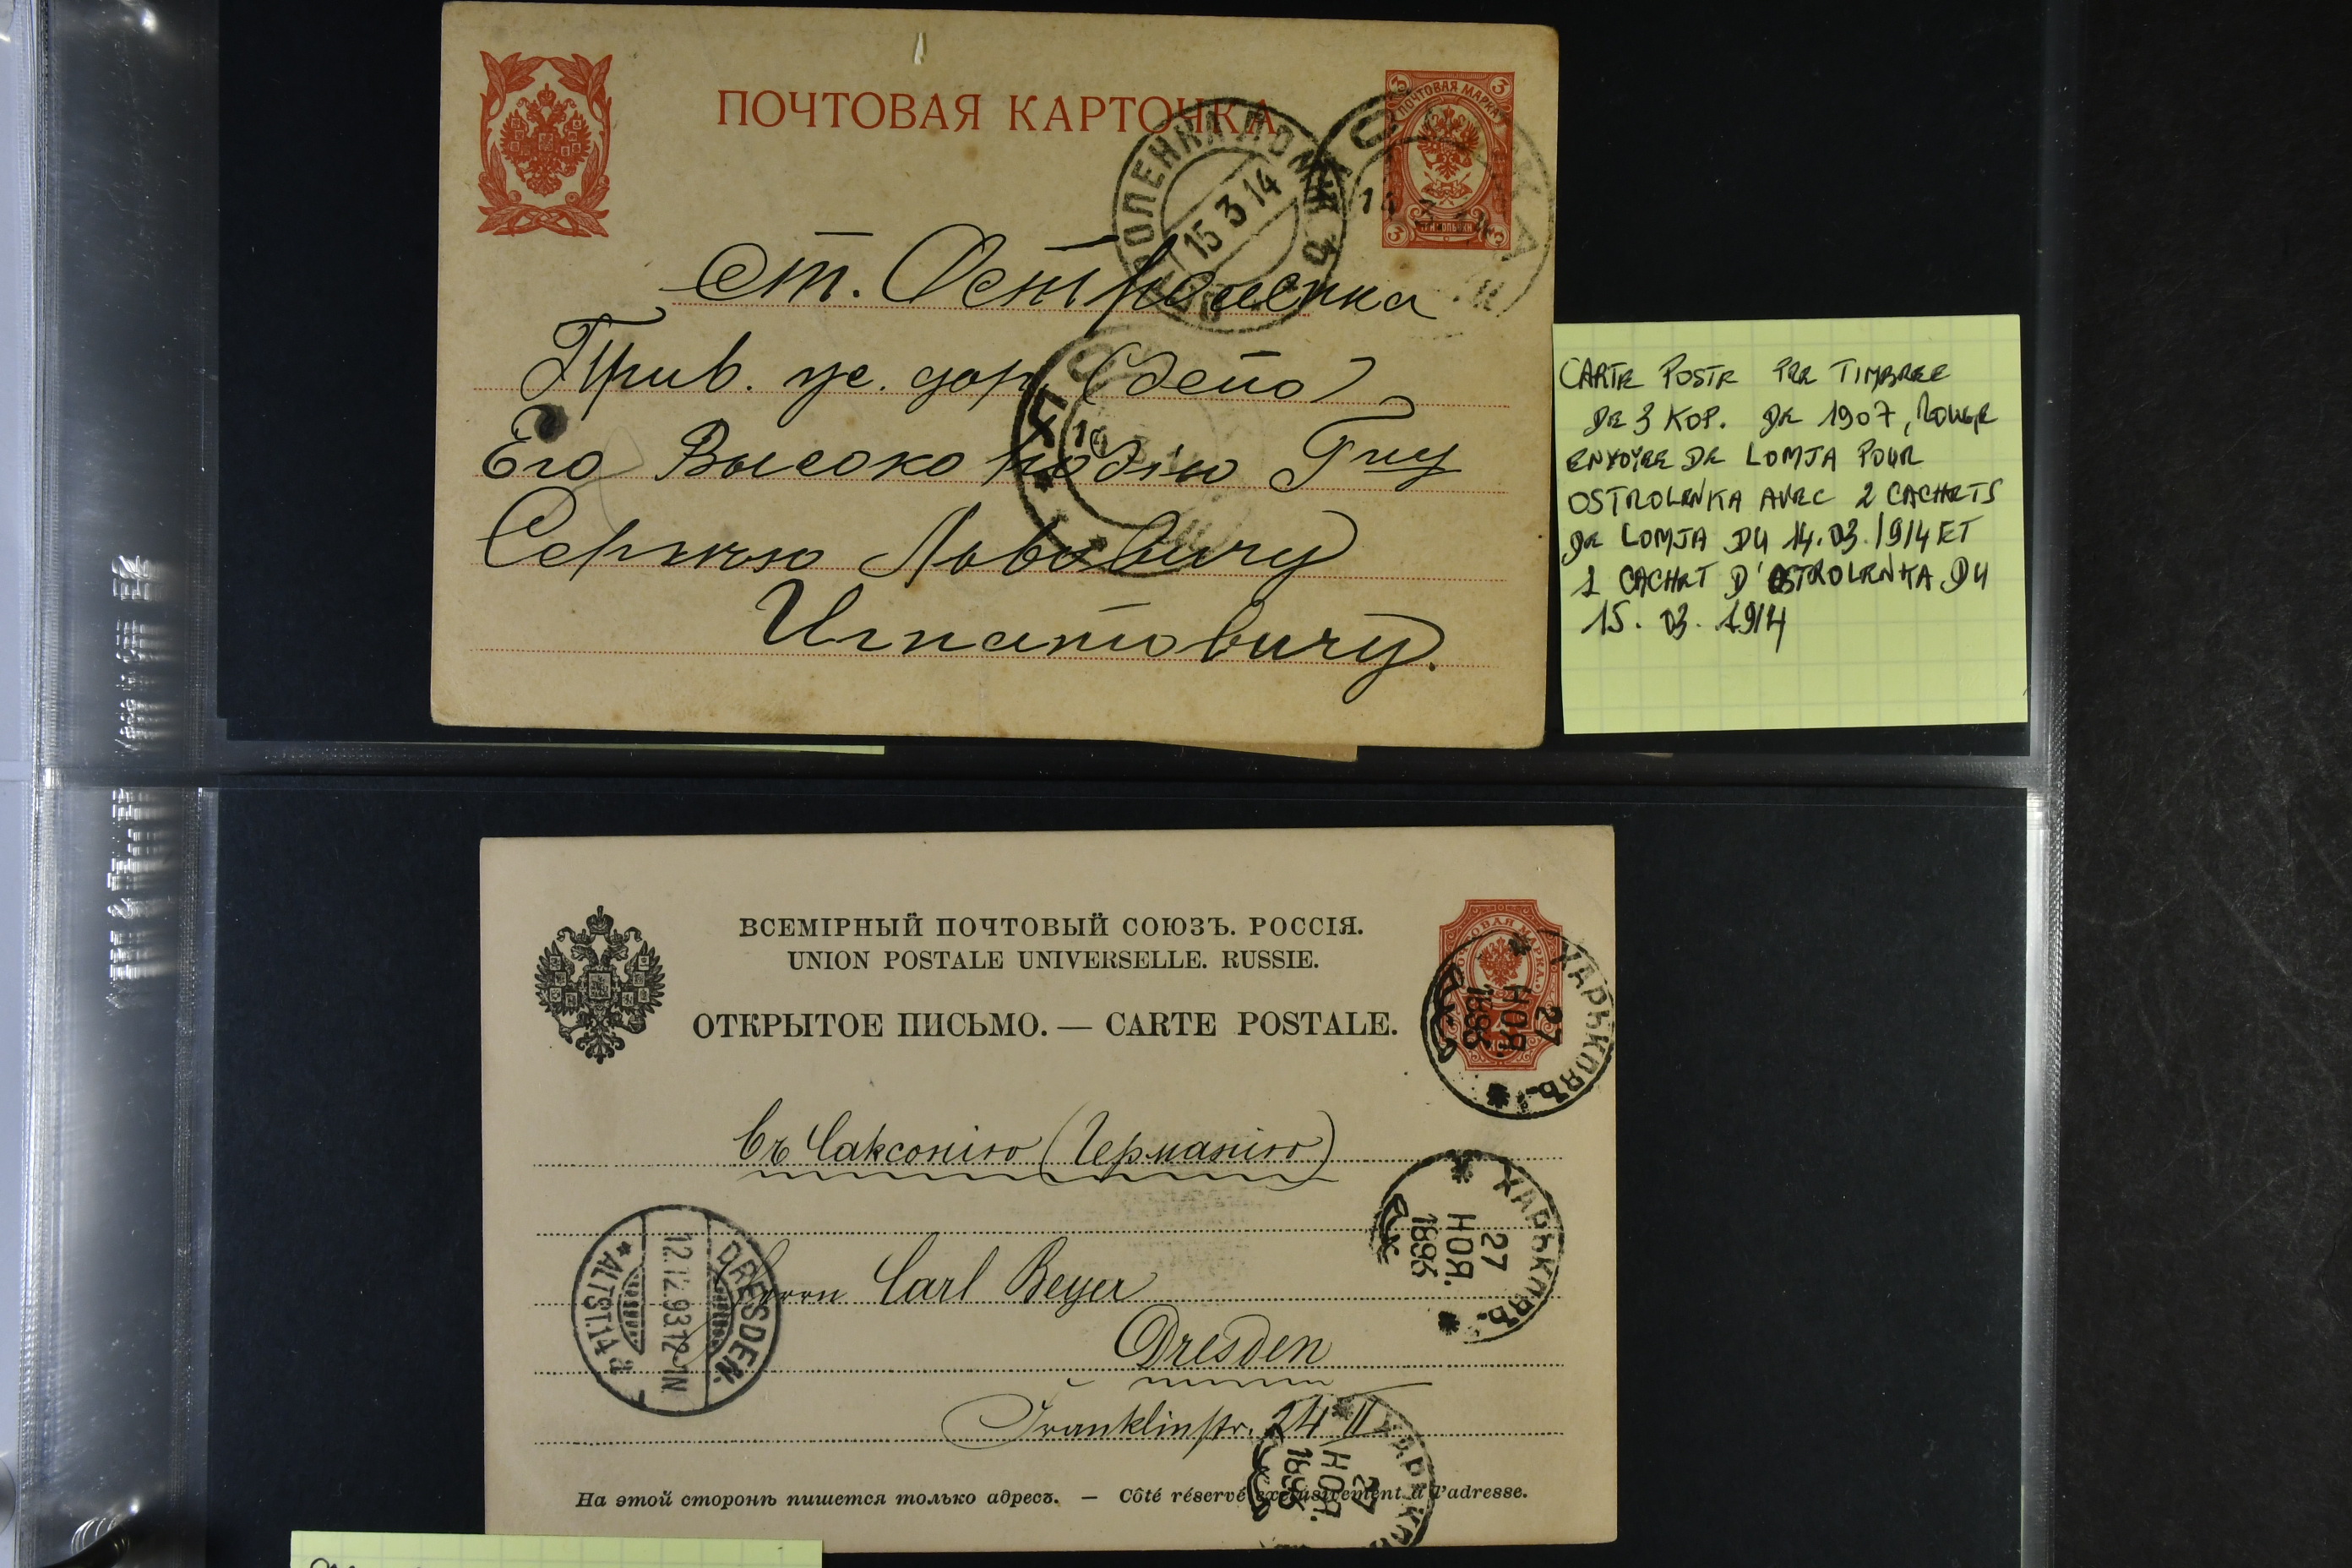 ПОЧТОВАЯ КАРТОЧКА
ПОЧТОВАЯ МАРКА
3 3
3 3
15 3 14
ст. Остроленка
Прив. ж. дор. (депо)
Его Высокородію Гну
Сергѣю Львовичу
Игнатовичу.
CARTE POSTE PRE TIMBREE
DE 3 KOP. DE 1907, ROUGE
ENVOYEE DE LOMJA POUR
OSTROLENKA AVEC 2 CACHETS
DE LOMJA DU 14.03.1914 ET
1 CACHET D'OSTROLENKA DU
15. 03. 1914
ВСЕМІРНЫЙ ПОЧТОВЫЙ СОЮЗЪ. РОССІЯ.
UNION POSTALE UNIVERSELLE. RUSSIE.
ОТКРЫТОЕ ПИСЬМО. — CARTE POSTALE.
ХАРЬКОВЪ.
27
НОЯ.
1893
въ Саксонію (Германію)
ХАРЬКОВЪ.
27
НОЯ.
1893
DRESDEN
12.12.93 12-1N
* ALTST. 14
Herrn Carl Beyer
Dresden
Franklinstr. 24 II
ХАРЬК
27
НОЯ.
1893
На этой сторонѣ пишется только адресъ. — Côté réservé exclusivement à l'adresse.